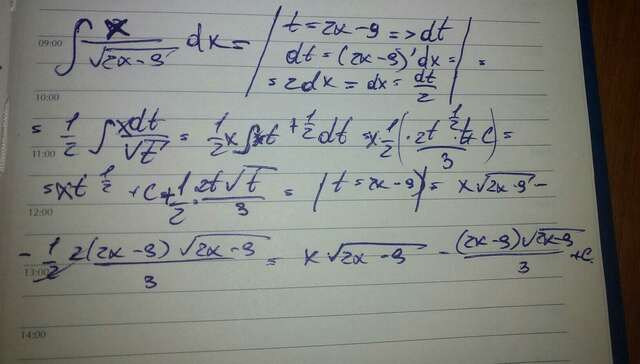 09:00 ∫ x/√(2x-9) dx = | t = 2x-9 => dt
dt = (2x-9)' dx = | =
= 2dx = dx = dt/2
10:00
= 1/2 ∫ xdt/√t = 1/2 x ∫ t^(+1/2) dt = x 1/2 ( · 2t^(1/2) · t/3 + C ) =
11:00
= x t^(1/2) + C + 1/2 · 2t√t/3 = | t = 2x-9 | = x √(2x-9) -
12:00
- 1/2 2(2x-9)√(2x-9)/3 = x √(2x-9) - (2x-9)√(2x-9)/3 + C.
13:00
14:00